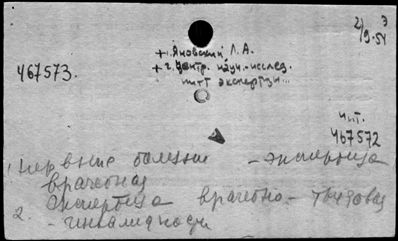 2/9-54
Э
+ г. Яновский Л. А.
+ г. Центр. научн.-исслед.
инст экспертизы...
467573.
Чит.
467572
1. Нервные болезни - экспертиза
врачебная
2. Экспертиза врачебно-трудовая
- инвалидности